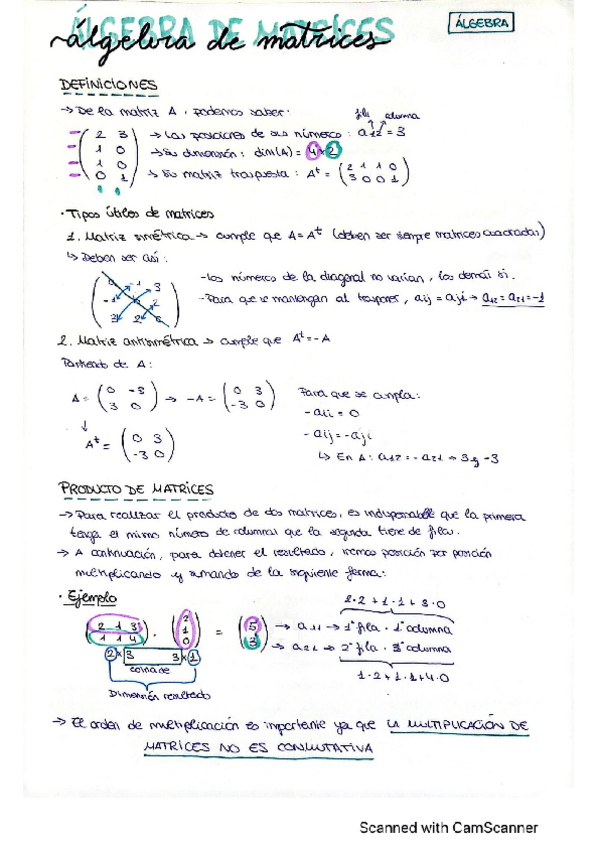 ÁLGEBRA DE MATRICES
~álgebra de matrices
ÁLGEBRA
DEFINICIONES
→ De la matriz A, podemos saber:
fila columna
( 2 3 ) → Las posiciones de sus números: a12 = 3
( 1 0 ) → Su dimensión: dim(A) = 4 × 2
( 1 0 ) → Su matriz traspuesta: A^t = ( 2 1 1 0
( 0 1 ) 3 0 0 1 )
· Tipos útiles de matrices
1. Matriz simétrica → cumple que A = A^t (deben ser siempre matrices cuadradas)
↳ Deben ser así:
-1 3
-1 2
3 2
- Los números de la diagonal no varían, los demás sí.
- Para que se mantengan al trasponer, aij = aji → a12 = a21 = -1
2. Matriz antisimétrica → cumple que A^t = -A
Partiendo de A:
A = ( 0 -3 ) → -A = ( 0 3 )
( 3 0 ) ( -3 0 )
↓
A^t = ( 0 3 )
( -3 0 )
Para que se cumpla:
- aii = 0
- aij = -aji
↳ En A: a12 = - a21 → 3 y -3
PRODUCTO DE MATRICES
→ Para realizar el producto de dos matrices, es indispensable que la primera
tenga el mismo número de columnas que la segunda tiene de filas.
→ A continuación, para obtener el resultado, iremos posición por posición
multiplicando y sumando de la siguiente forma:
· Ejemplo
2·2 + 1·1 + 3·0
( 2 1 3 ) · ( 2 ) = ( 5 ) → a11 → 1ª fila · 1ª columna
( 1 1 4 ) ( 1 ) ( 3 ) → a21 → 2ª fila · 1ª columna
( 0 )
2 × 3 3 × 1
coincide
Dimensión resultado
1·2 + 1·1 + 4·0
→ El orden de multiplicación es importante ya que LA MULTIPLICACIÓN DE
MATRICES NO ES CONMUTATIVA
Scanned with CamScanner